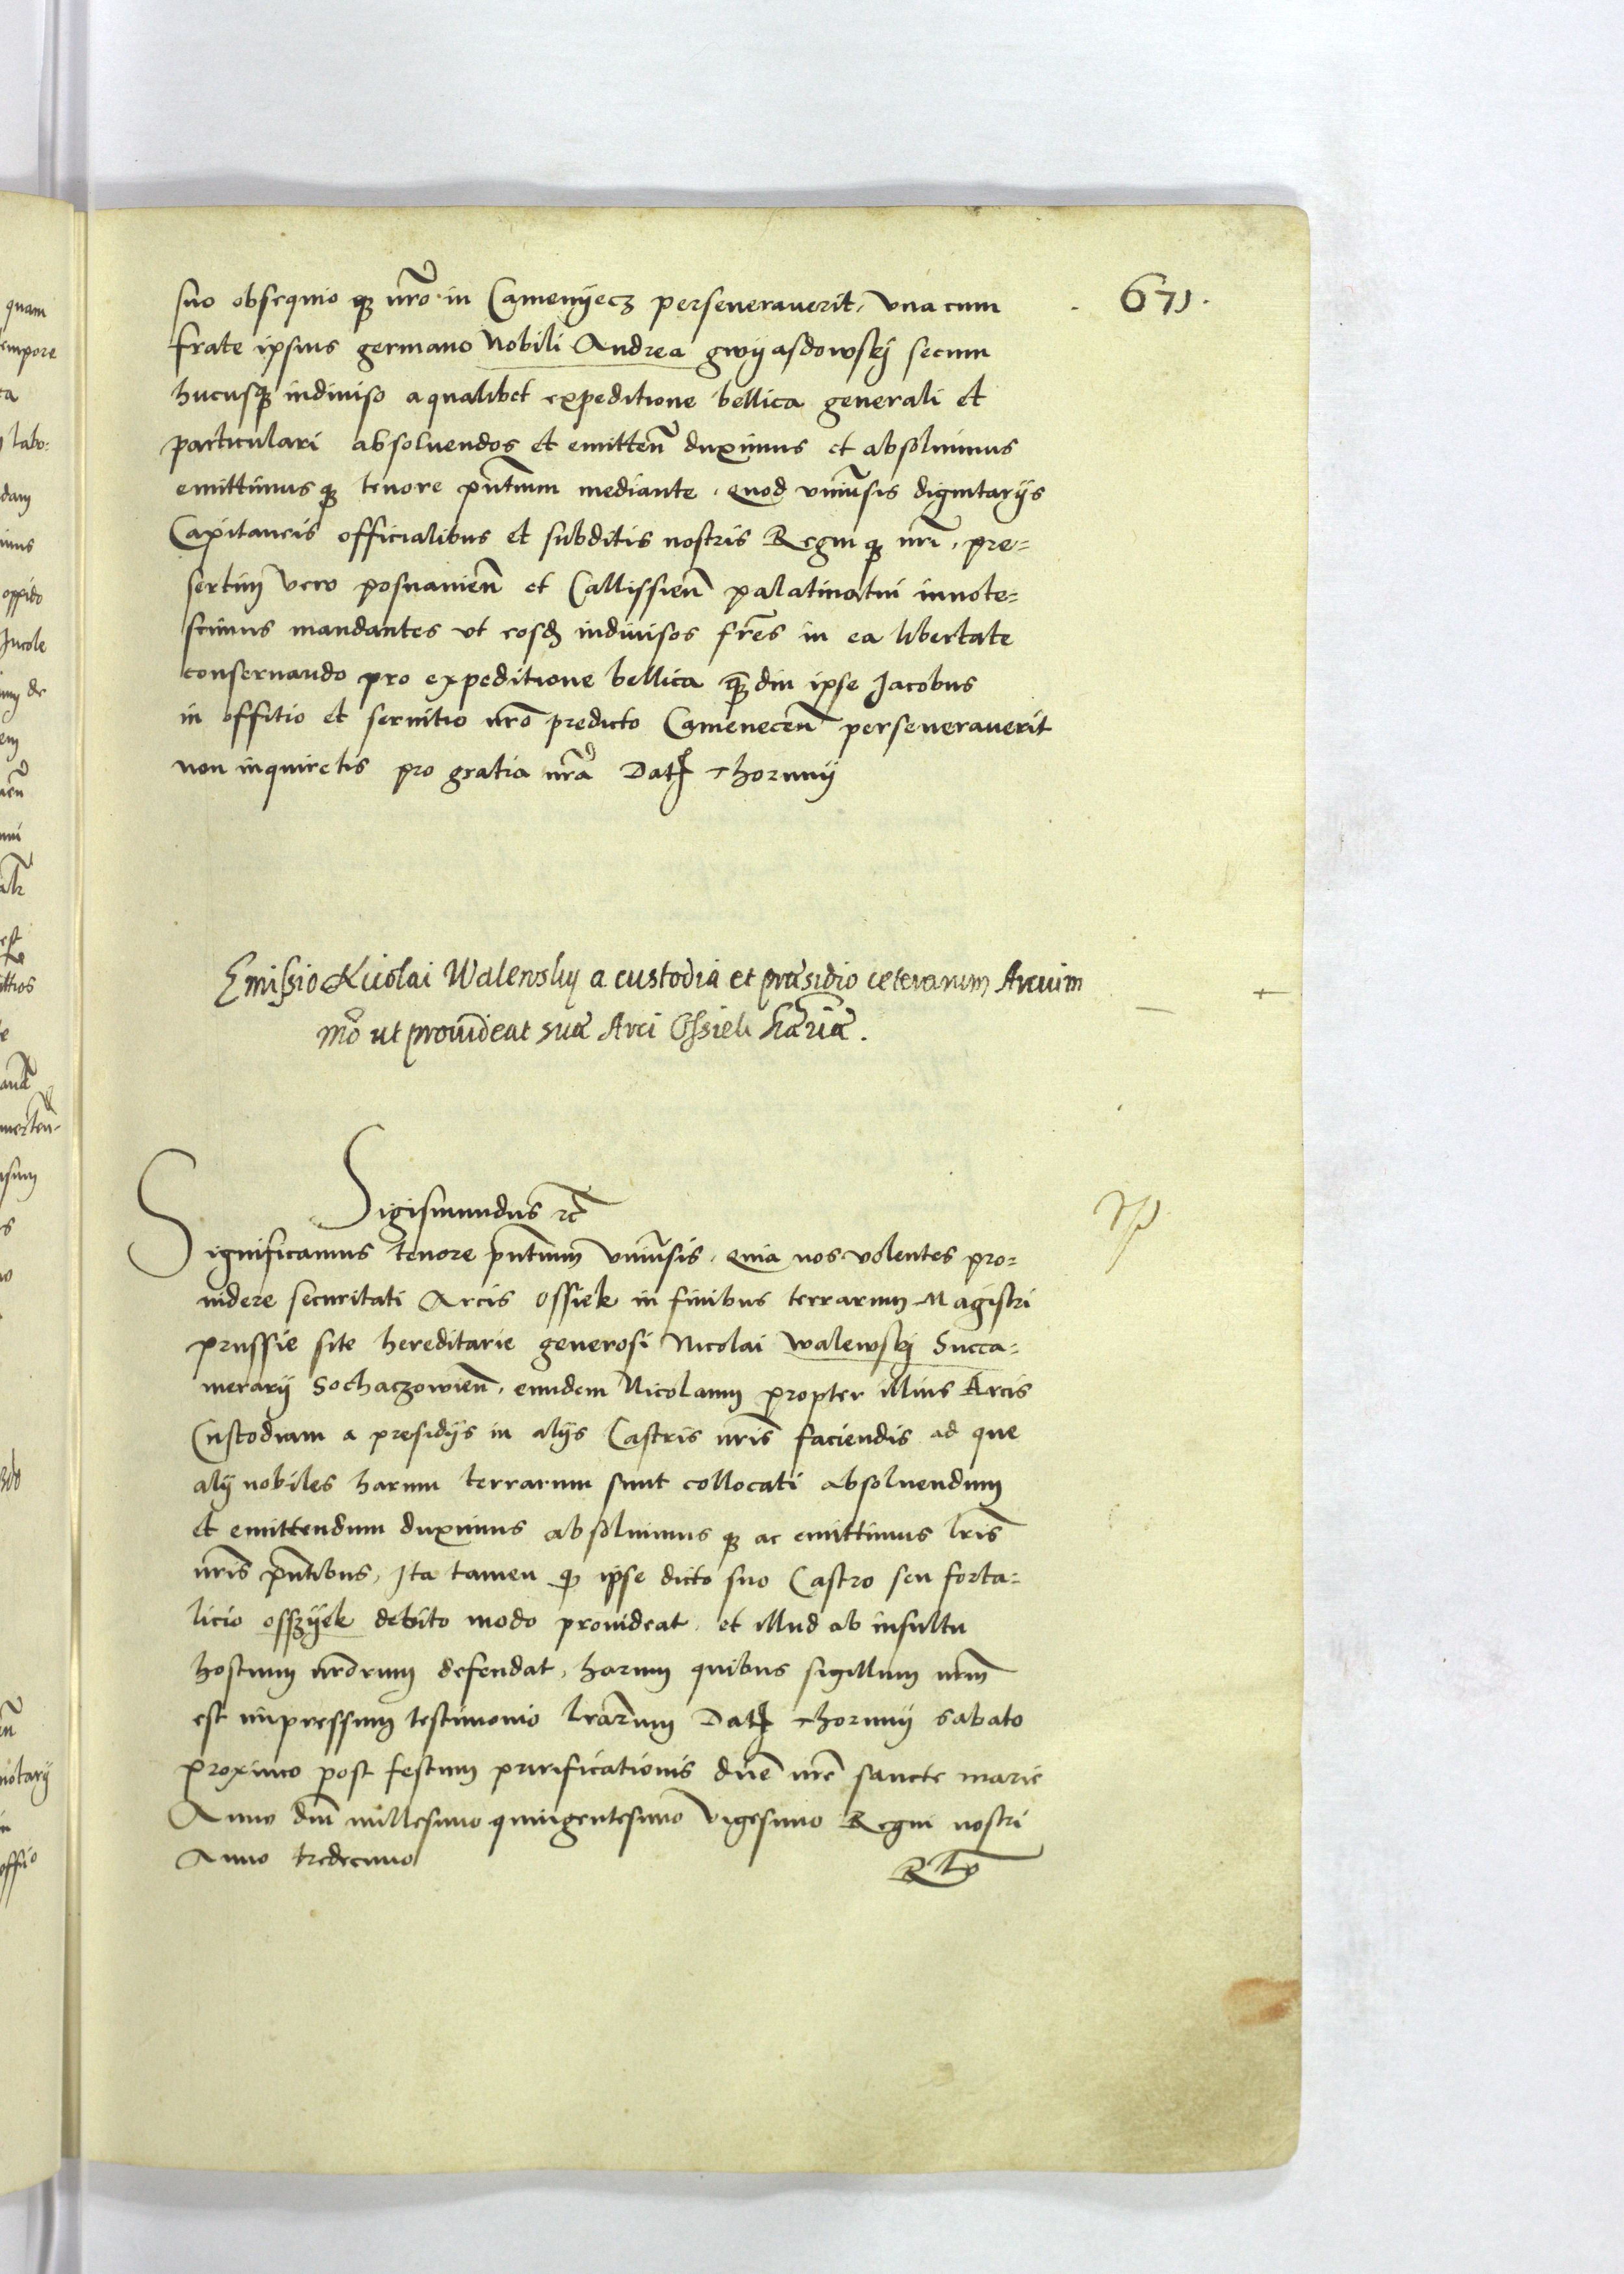 671.
suo obsequio q3 nrō in Camenyecz perseveraverit, vna cum
fratre ipsius germano Nobili Andrea gwyasdowskj secum
hucusq3 indiviso a qualibet expeditione bellica generali et
particulari absoluendos et emitteñ duximus et absoluimus
emittimus q3 tenore pñtium mediante. quod vniuersis dignitarijs
Capitaneis officialibus et subditis nostris Regni q3 nri, pre=
sertim vero posnanieñ et Callissieñ palatinatui innote=
scimus mandantes vt eosd indiuisos fres in ea libertate
conseruando pro expeditione bellica quādiu ipse Jacobus
in offitio et seruitio nrō predicto Cameneceñ perseverauerit
non inquiretis pro gratia nrā Dat Thorunij
Emissio Nicolai Walewsky a custodia et præsidio ceterarum Arcium
mo ut provideat suæ Arci Ossiek hæriæ.
Sigismundus rc
Significamus tenore pñtium vniuersis, quia nos volentes pro=
uidere securitati Arcis Ossiek in finibus terrarum Magistri
prussie site hereditarie generosi Nicolai walewskj Succa=
merarij Sochaczowieñ, eundem Nicolaum propter illius Arcis
Custodiam a presidijs in alijs Castris nris faciendis ad que
alij nobiles harum terrarum sunt collocati absoluendum
et emittendum duximus absoluimus q3 ac emittimus lris
nris pñtibus, Ita tamen q ipse dicto suo Castro seu forta=
licio osszyek debito modo prouideat, et illud ab insultu
hostium nrōrum defendat, harum quibus sigillum nrm
est impressum testimonio lrārum Dat Thorunij sabato
proximo post festum purificationis dnē nrē sancte marie
Anno dnī millesimo quingentesimo vigesimo Regni nostri
Anno tredecimo